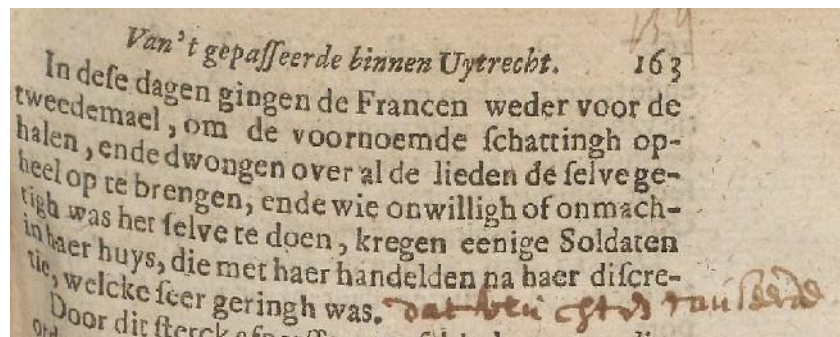 Van't gepaſſeerde binnen Uytrecht. 163
In deſe dagen gingen de Francen weder voor de
tweedemael, om de voornoemde ſchattingh op-
halen, ende dwongen over al de lieden de ſelve ge-
heel op te brengen, ende wie onwilligh of onmach-
tigh was het ſelve te doen, kregen eenige Soldaten
in haer huys, die met haer handelden na haer diſcre-
tie, welcke ſeer geringh was. dat
Door dit ſterck